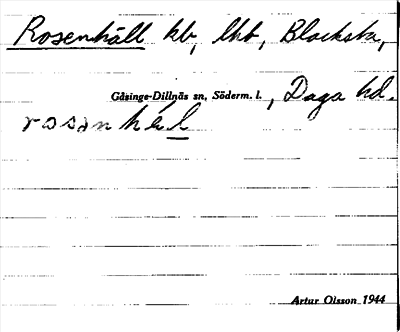 Rosenhäll hb, lhb, Blacksta,
Gåsinge-Dillnäs sn, Söderm. l., Daga hd.
rosənhäl
Artur Olsson 1944